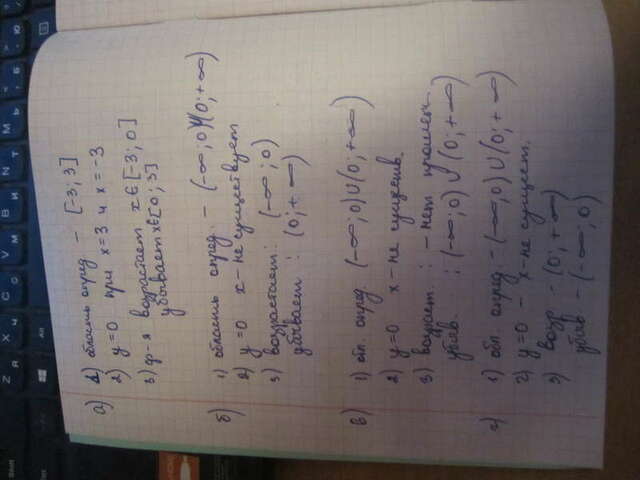 Shift
Z
Я
X
Ч
C
С
V
М
B
И
N
Т
M
Ь
Б
Ю
Ctrl
Alt
а) 1) область опред - [-3; 3]
2) y=0 при x=3 и x=-3
3) ф-я возрастает x∈[-3; 0]
убывает x∈[0; 3]
б) 1) область опред. - (-∞; 0)U(0; +∞)
2) y=0 x - не существует
3) возрастает: (-∞; 0)
убывает : (0; +∞)
в) 1) обл. опред. (-∞; 0)U(0; +∞)
2) y=0 x - не существ.
3) возраст. : - нет промеж.
убыв. : (-∞; 0) U (0; +∞)
г) 1) обл. опред. - (-∞; 0) U (0; +∞)
2) y=0 - x - не сущест.
3) возр - (0; +∞)
убыв. - (-∞; 0)